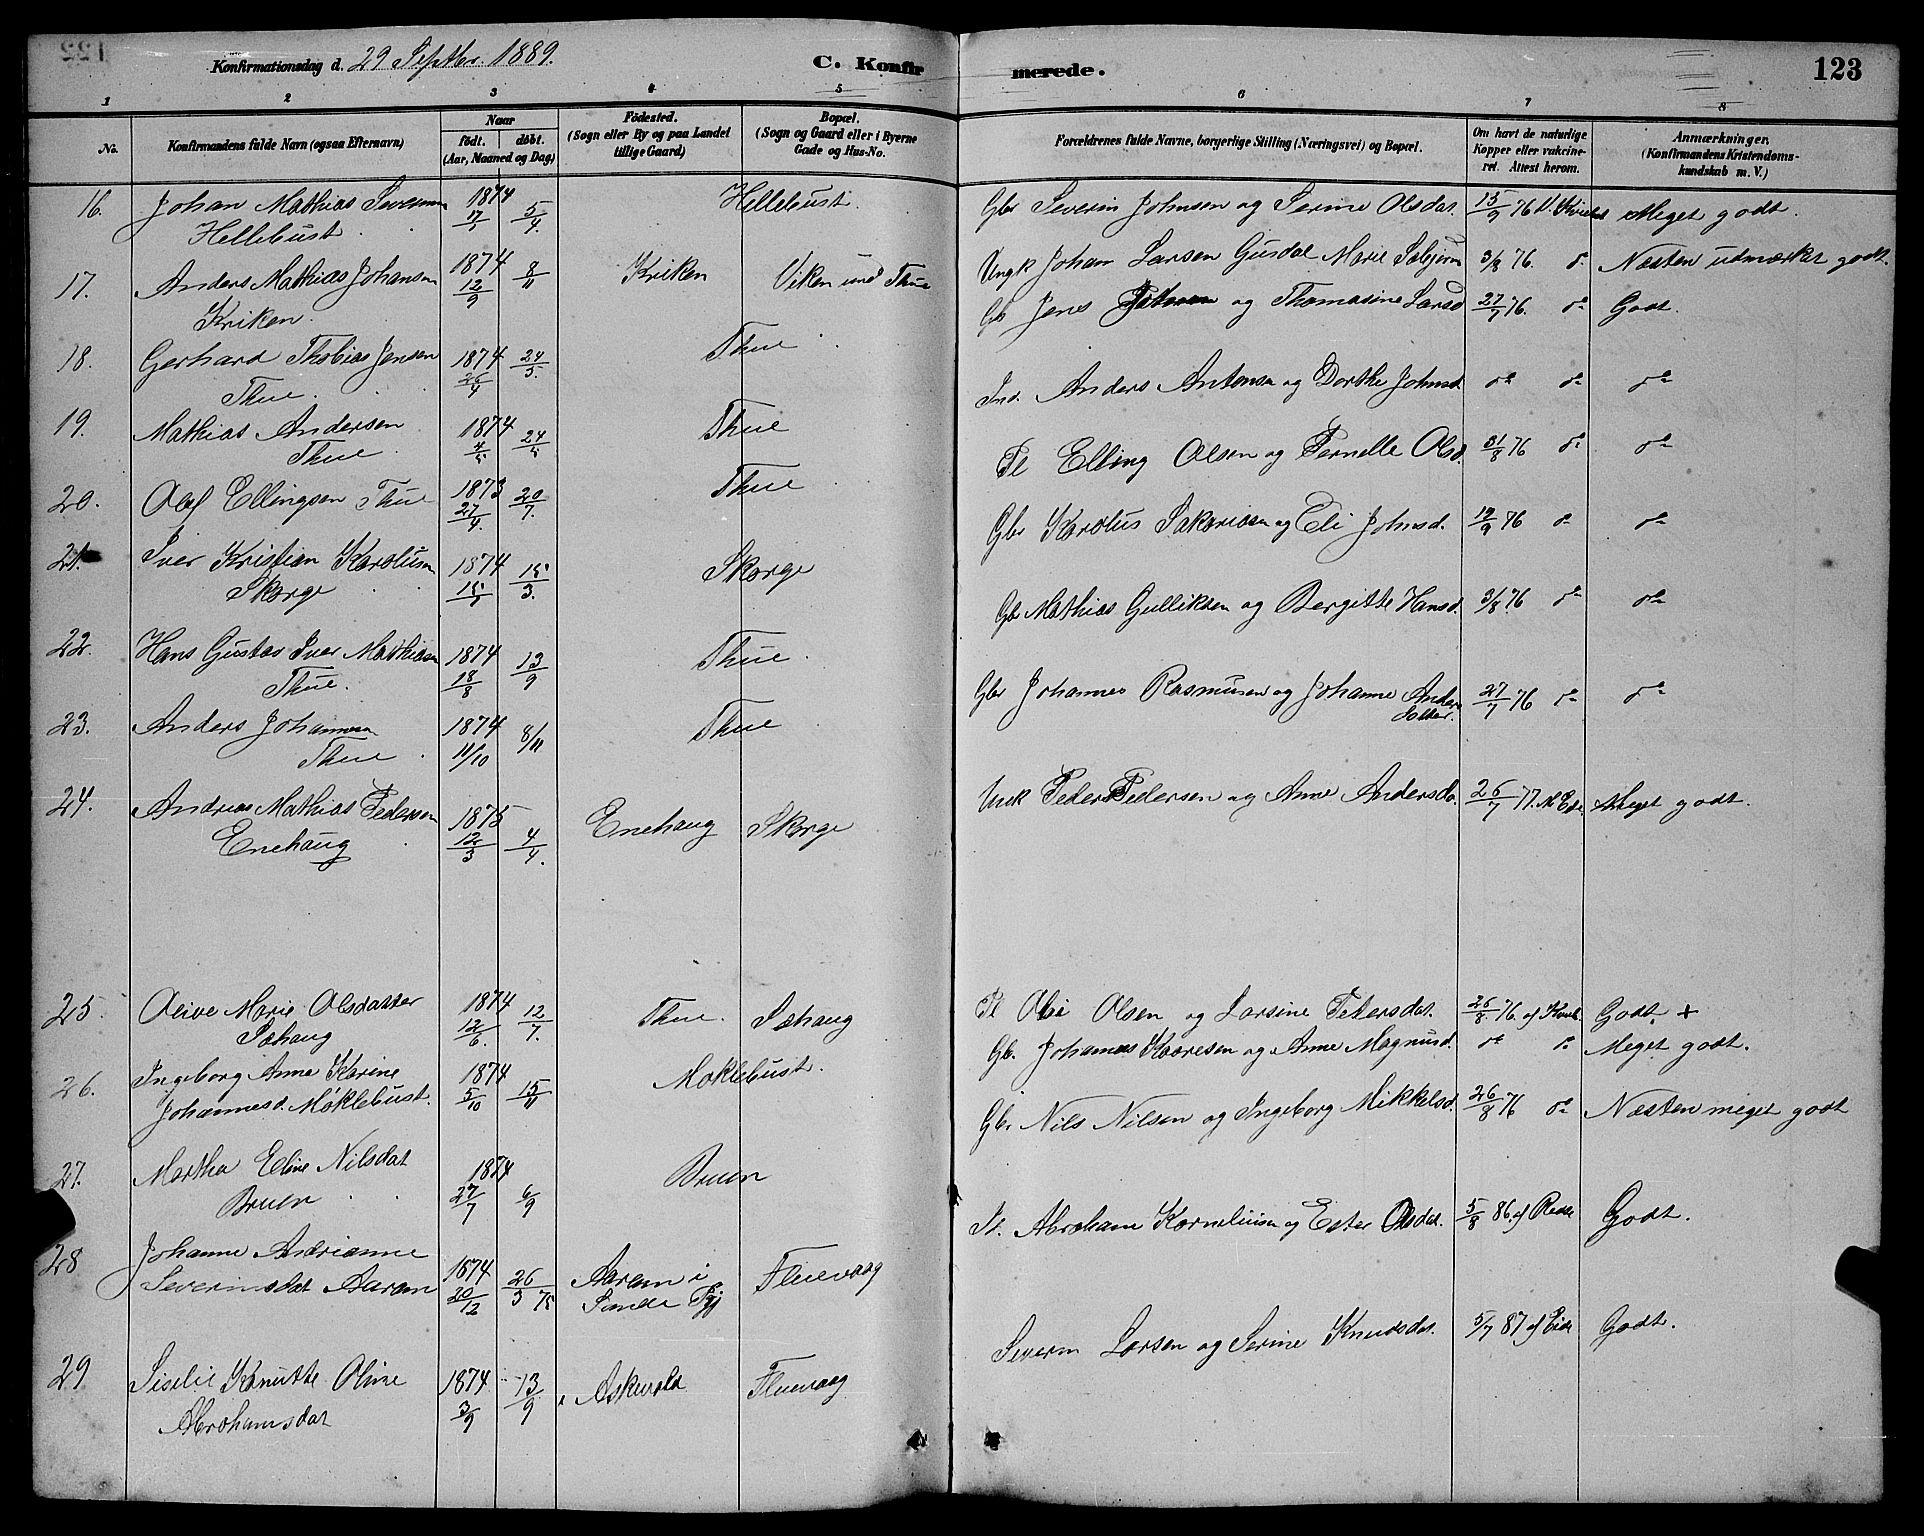 Konfirmationsdag d. 29 Septbr. 1889.
C. Konfirmerede.
123
1 2 3 4 5 6 7 8
No.
Konfirmandens fulde Navn (ogsaa Efternavn)
Naar
født. døbt.
(Aar, Maaned og Dag)
Fødested.
(Sogn eller By og paa Landet
tillige Gaard)
Bopæl.
(Sogn og Gaard eller i Byerne
Gade og Hus-No.
Forældrenes fulde Navne, borgerlige Stilling (Næringsvei) og Bopæl.
Om havt de naturlige
Kopper eller vakcine-
ret. Attest herom.
Anmærkninger.
(Konfirmandens Kristendoms-
kundskab m. V.)
16. Johan Mathias Severinsen 1874 5/4 Hellebust Gbr Severin Johnsen og Serine Olsdat. 15/9 76 Meget godt.
Hellebust
17. Anders Mathias Johansen 1874 12/9 8/11 Kriken Viken und Thue Ungk Johan Larsen Gusdal Marie 3/8 76. do Næsten udmærket godt.
Kriken.
18. Gerhard Thobias Jensen 1874 26/4 24/5. Thue Gb Jens og Thomasine Larsd 27/7 76. do Godt.
Thue.
19. Mathias Andersen 1874 4/5 24/5 Thue Ind. Anders Antonsen og Dorthe Johnsd. do do do
Thue
20. Olaf Ellingsen Thue 1873 27/4. 20/7. Thue Pl Elling Olsen og Pernelle Olsd. 31/8 76 do do
21. Iver Kristian Karolusen 1874 15/3. Skorge Gbr Karolus Sakariasen og Eli Johnsd. 19/9 76 do do
Skorge
22. Hans Gustav Iver Mathiasen 1874 18/8 13/9 Thue Gb Mathias Gulliksen og Bergitte Hansd. 3/8 76 do do
Thue.
23. Anders Johannesen 1874 11/10 8/11 Thue Gbr Johannes Rasmusen og Johanne Anders
datter. 27/7 76 do do
Thue
24. Andreas Mathias Pedersen 1875 12/3 4/4. Enehaug Skorge Unk Peder Pedersen og Anne Andersda. 26/7 77. Meget godt.
Enehaug
25. Olive Marie Olsdatter 1874 12/6. 12/7. Thue. Sæhaug Pl Ole Olsen og Larsine Petersdat. 26/8 76. af Godt. +
Sæhaug
26. Ingeborg Anne Karine 1874 5/10 15/11 Moklebust. Gb. Johannes Kaaresen og Anne Magnusd. do do Meget godt.
Johannesd. Møklebust.
27. Martha Eline Nilsdat 1874 27/7 6/9 Bruen Gbr. Nils Nilsen og Ingeborg Mikkelsd. 26/8 76 do Næsten meget godt
Bruen
28 Johanne Andrianne Pl. Abraham Korneliusen og Ester Olsdat. 5/8 86. af Godt.
Severinsdat Aaram 1874 20/12 26/3 75 Aaram i Fluevaag
Sande
29 Siselie Knutte Oline 1874 3/9 13/9 Askevold Fluevaag Severin Larsen og Serine Knudsdat. 5/7 87 af Eide Godt.
Abrahamsdat